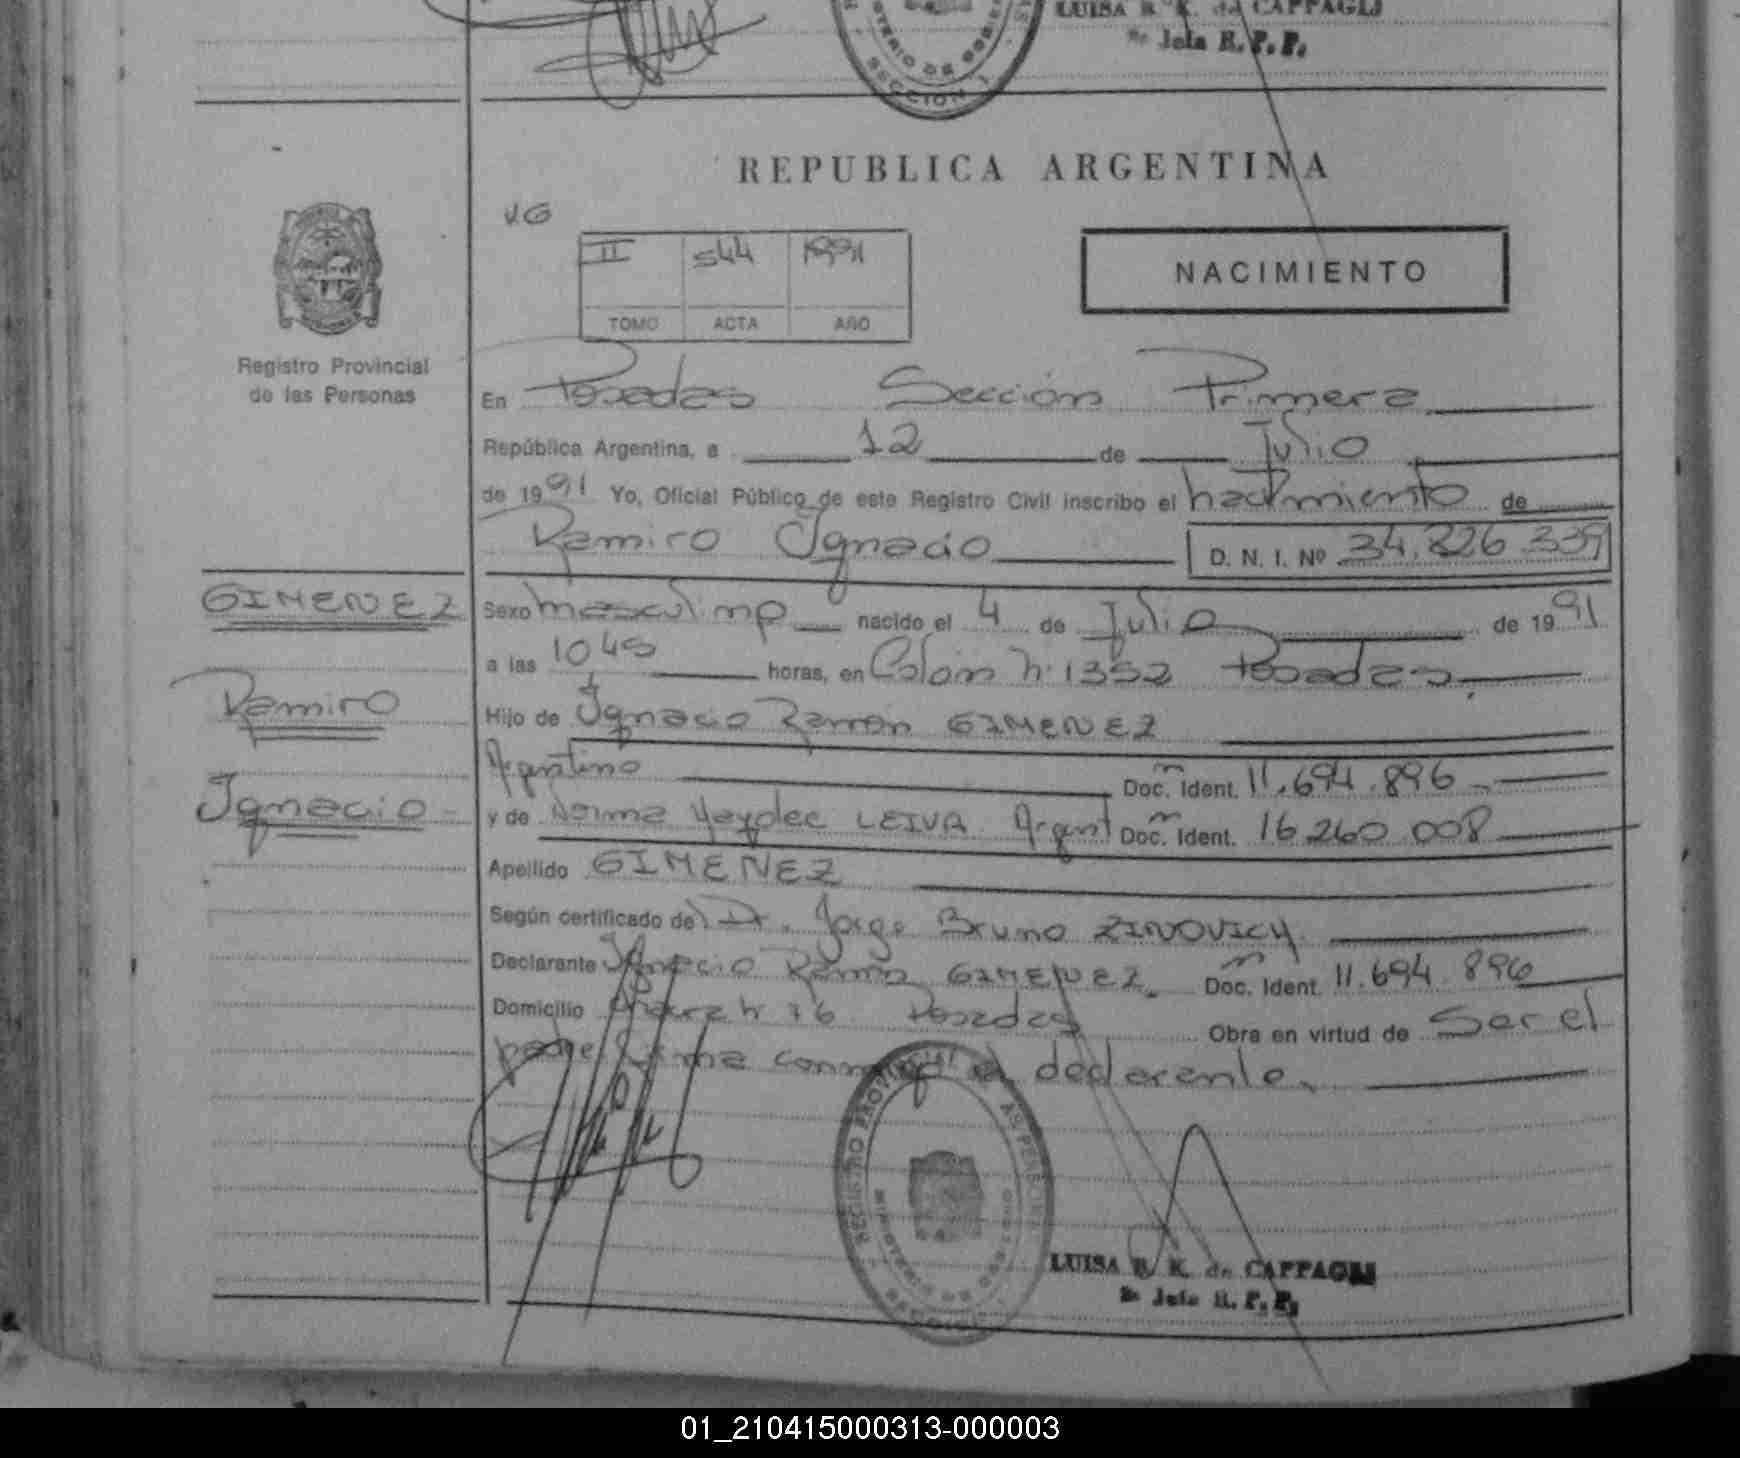 LUISA R. K. de CAPPAGLI
Jefa R. P. P.
SECCION 1
REPUBLICA ARGENTINA
VG
II 544 1991
TOMO ACTA AÑO
NACIMIENTO
Registro Provincial
de las Personas
En Posadas Sección Primera
República Argentina, a 12 de Julio
de 1991 Yo, Oficial Público de este Registro Civil inscribo el nacimiento de
Ramiro Ignacio D. N. I. Nº 34.826.339
GIMENEZ
Ramiro
Ignacio
Sexo masculino nacido el 4 de Julio de 1991
a las 1045 horas, en Colón Nº 1352 Posadas.
Hijo de Ignacio Ramón GIMENEZ
Argentino Doc. Ident. 11.694.896
y de Norma Haydee LEIVA Argent Doc. Ident. 16.260.008
Apellido GIMENEZ
Según certificado de Dr. Jorge Bruno ZINOVICH
Declarante Ignacio Ramón GIMENEZ. Doc. Ident. 11.694.896
Domicilio 76 Posadas Obra en virtud de Ser el
padre firma conmigo el declarante.
REGISTRO PROVINCIAL DE LAS PERSONAS
MINISTERIO DE GOBIERNO
SECCION 1
LUISA R. K. de CAPPAGLI
Jefa R. P. P.
01_210415000313-000003